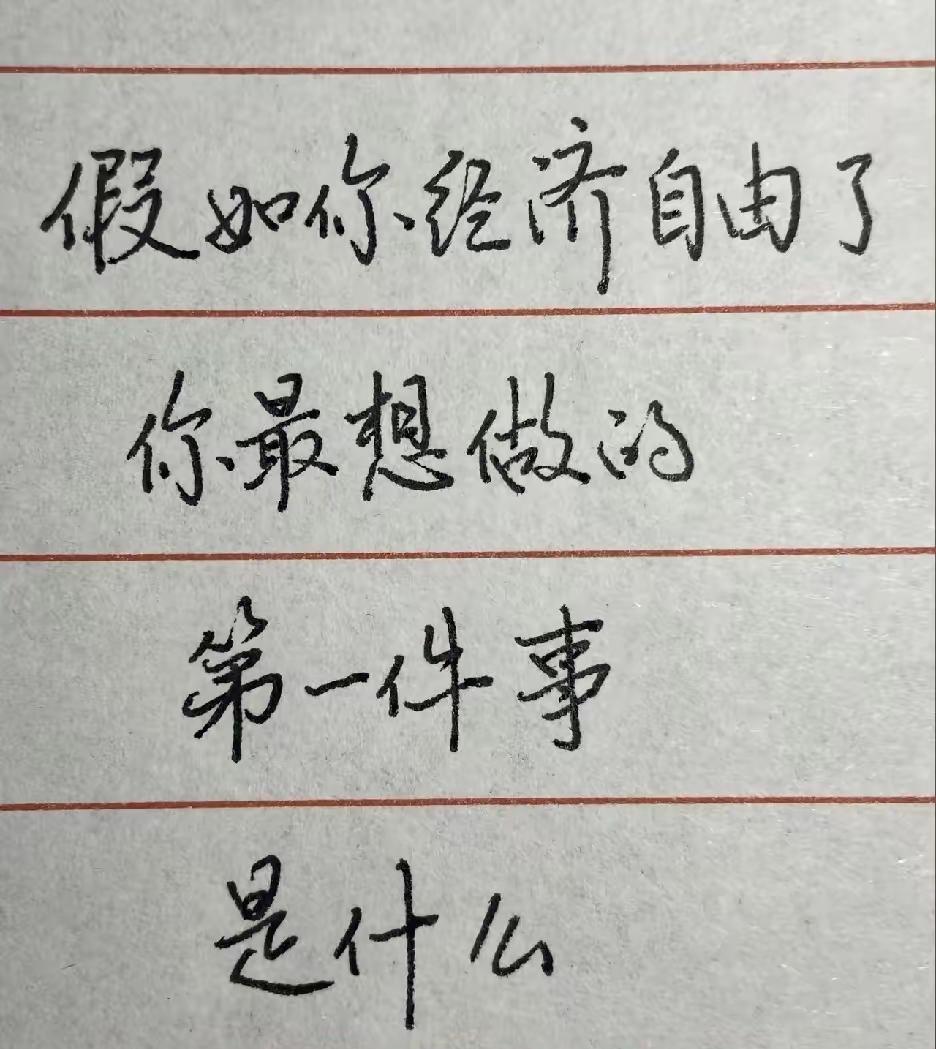 假如你经济自由了
你最想做的
第一件事
是什么